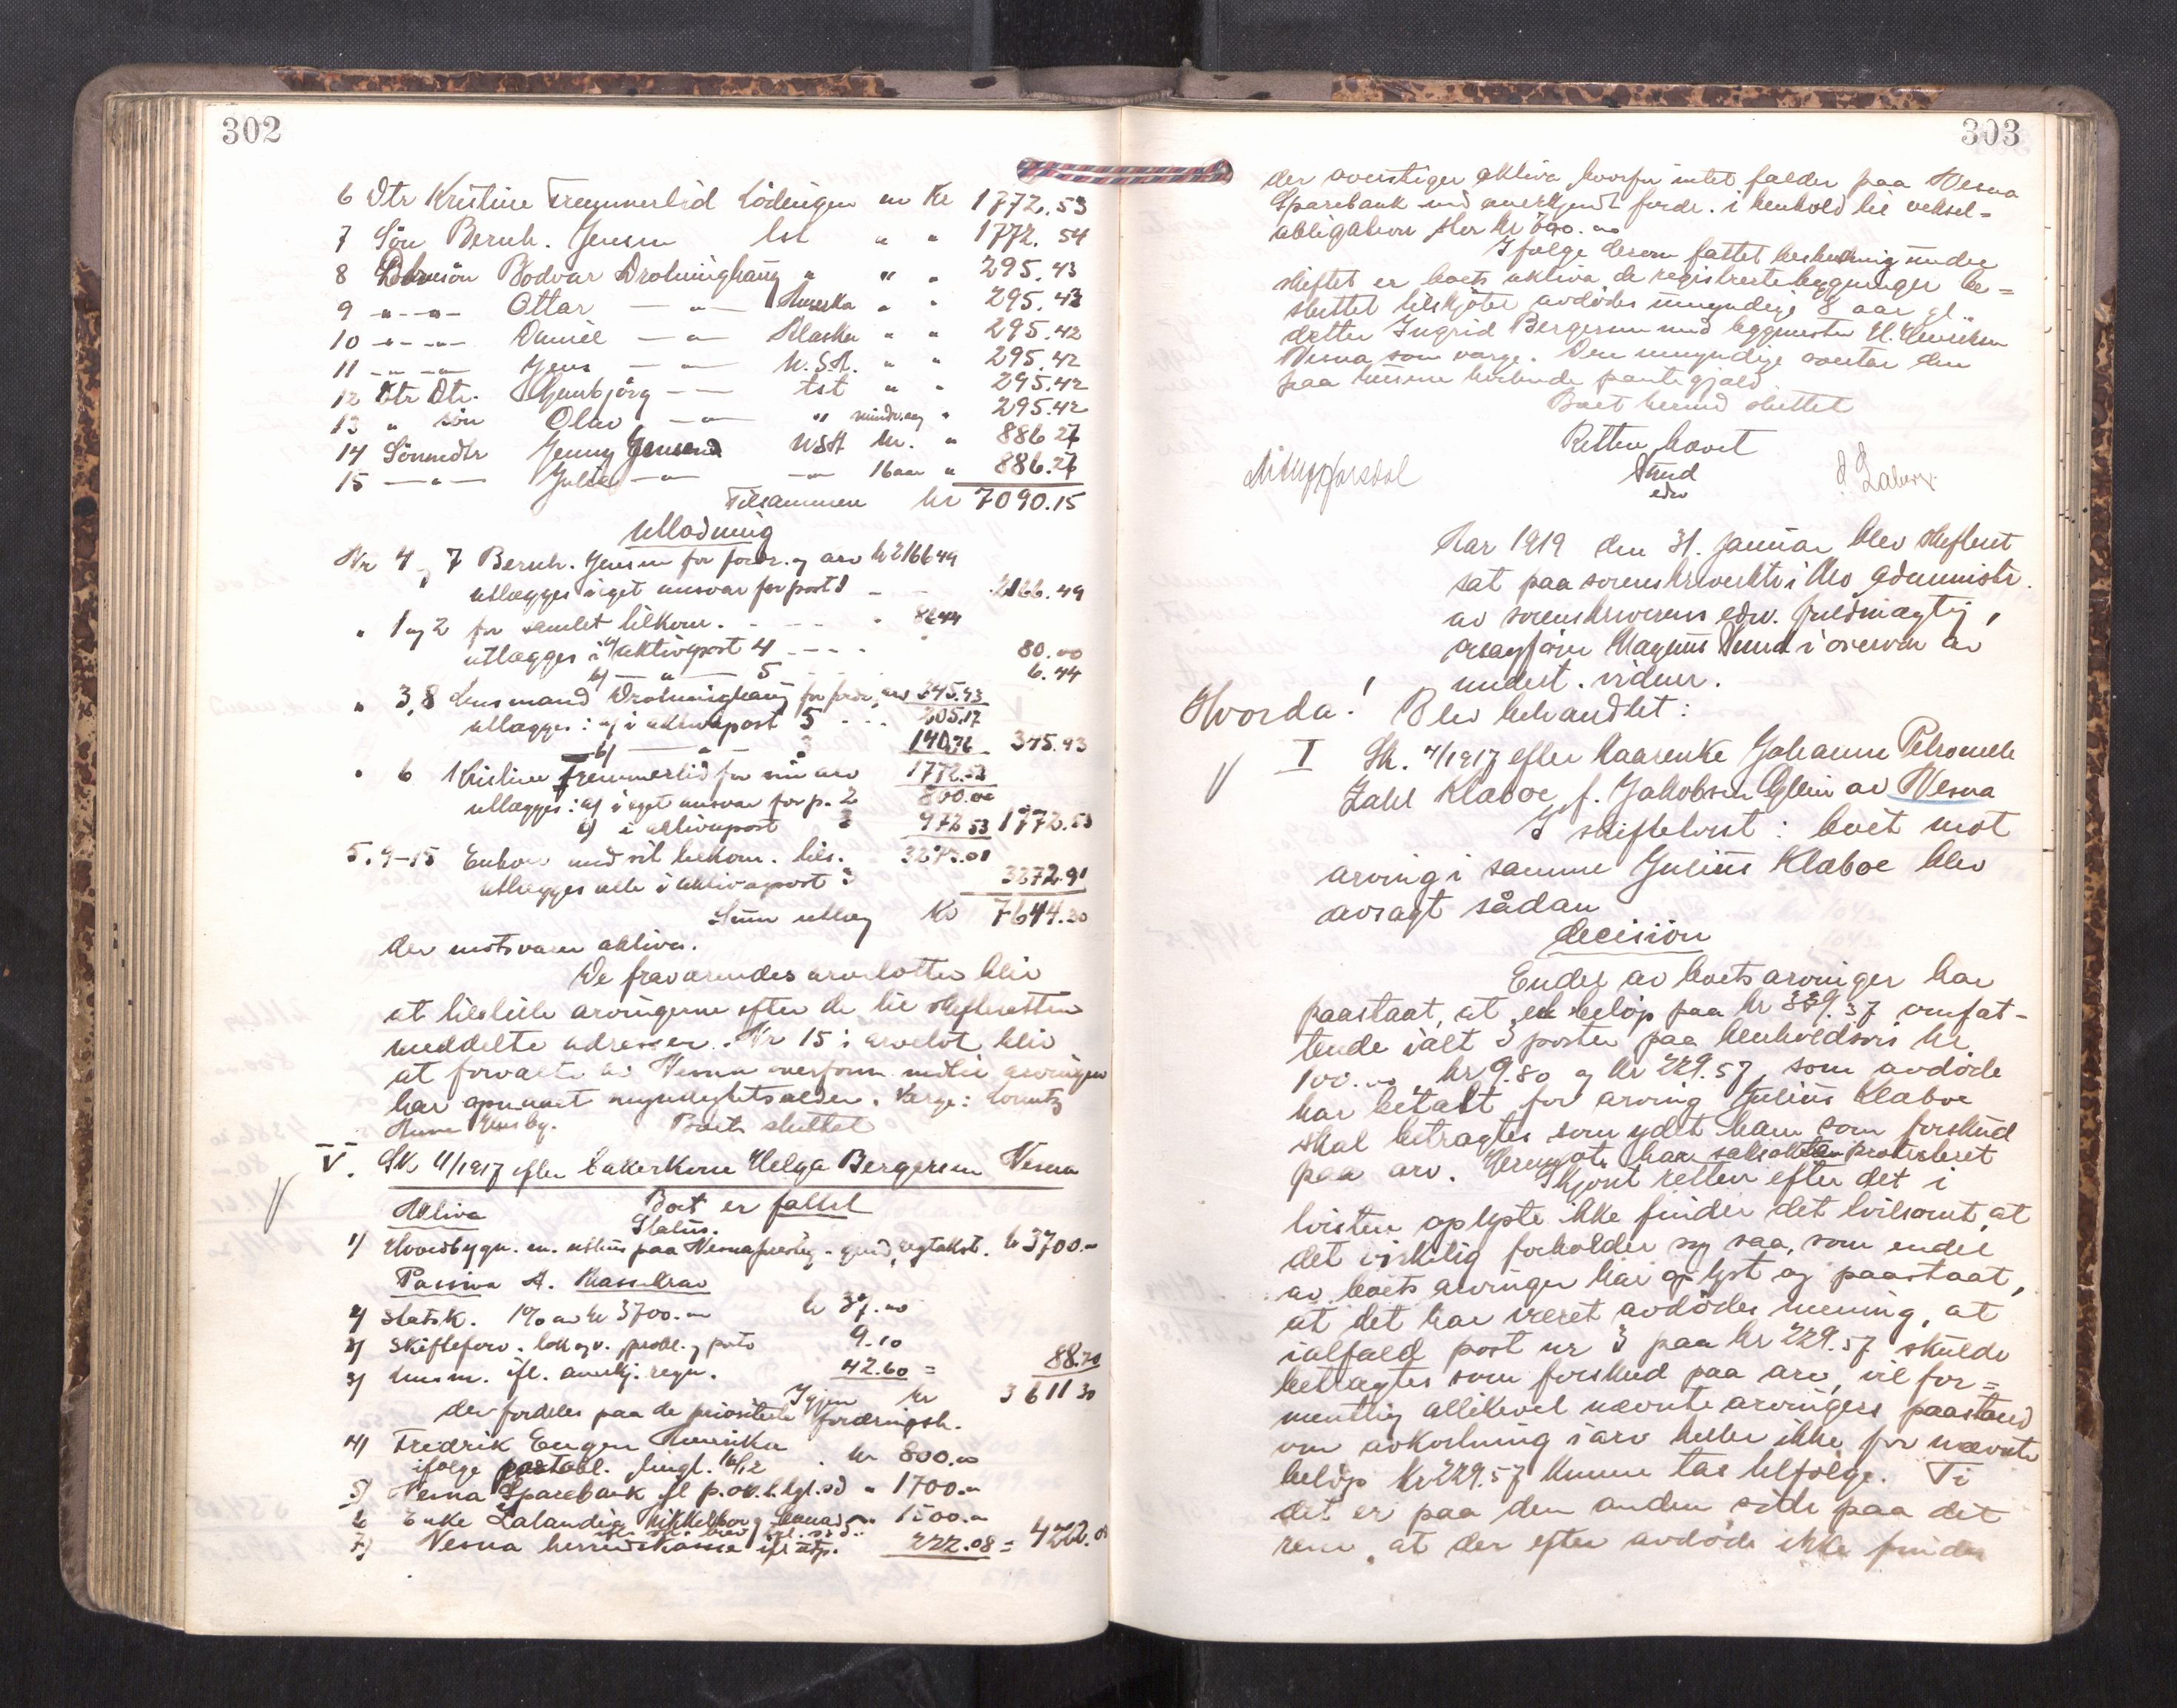 302
6 Dtr Kristine Tremmerlid Lödingen m Kr 1772.53
7 Sön Bernh. Jensen tst " " 1772.54
8 Bodvar Drotninghaug " " " 295.43
9 -"- -"- Ottar -"- Amerika " " 295.43
10 -"- -"- Daniel -"- Alaska " " 295.42
11 -"- -"- Jens -"- U.S.A. " " 295.42
12 Dtr Dtr. Gunbjörg -- tst " " 295.42
13 " sön Olav -"- " mindreaarig " 295.42
14 Sönnedtr Jenny Jensen USA m. " 886.27
15 -"- -"- 16 aar " 886.27
Tilsammen kr 7090.15
Utlodning
Nr 4 og 7 Bernh. Jensen for fordr. og arv kr 2166 49
utlægges i eget ansvar for post 1 - - 2166.49
" 1 og 2 for samlet tilkom. - - - " 86 44
utlægges i a) aktivapost 4 - - - - 80.00
b) -"- 5 6.44
" 3, 8 Lensmand Drotninghaug for fordr., arv 345.93
utlægges: a) i aktivapost 5 - - - 205.17
b) -"- 3 140.76 345.93
" 6 Kristine Tremmerlid for sin arv 1772.53
utlægges: a) i eget ansvar for p. 2 800.00
b) i aktivapost 3 972 53 1772.53
5. 9-15 med sit tilkom. tils.
utlægges alle i aktivapost 3 3272.91
Sum utlæg Kr 7644.30
der motsvarer aktiva.
De fraværendes arvelotter blir
at tilstille arvingerne efter de til skifteretten
meddelte adresser. Nr 15's arvelot blir
at forvalte av Nesna overform. indtil arvingen
har opnaaet myndighetsalder. Værge: Lorentz
Boet sluttet
V. Sk. 4/1917 efter bakerkone Helga Bergersen Nesna
Boet er fallit
Aktiva Status.
1) Hovedbygn. m. uthus paa Nesna prestegj. grund, regtakst. kr 3700.-
Passiva A. Massekrav
2) Statsk. 1% av kr 3700.00 kr 37.00
3) Skifteforv. prokl. og porto 9.10
3) Lensm. ifl. anerkj. regn. 42.60 = 88.70
Igjen kr 3611 30
der fordeles paa de prioriterte fordringsh.
4) Fredrik Eugen Henrika
ifølge pantobl. tingl. " kr 800.00
5) Nesna Sparebank ifl p.obl. tgl. sd " 1700.00
6) Enke Lalandia Mikkelborg 1500.00
7) Nesna herredskasse ifl utp. 222.08 = 4222.08
303
der overstiger aktiva hvorfor intet falder paa Nesna
Sparebank med anerkjendt fordr. i henhold til veksel-
obligation stor kr
Ifølge derom fattet beslutning under
skiftet er boets aktiva de registrerte bygninger be-
sluttet tilskjøtet avdödes umyndige 8 aar gl.
datter Ingrid Bergersen med byggmester H. Henriksen
Nesna som værge. Den umyndige overtar den
paa husene heftende pantegjæld
Boet hermed sluttet
Retten hævet
Sund
edsv
Aar 1919 den 31. januar blev skifteret
sat paa sorenskriverkt. i Mo administr.
av sorenskriverens edsv. fuldmægtig,
o.r.sagfører Magnus Sund i overvær av
undert. vidner.
Hvorda! Blev behandlet:
I Sk. 4/1917 efter Gaarenke Johanna Petronelle
Zahl Klæboe f. Jakobsen Glein av Nesna
I skiftetvist: boet mot
arving i samme Julius Klæboe blev
avsagt sådan
decision
Endel av boets arvinger har
paastaat, at et belöp paa kr 339.37 omfat-
tende ialt 3 poster paa henholdsvis kr
100.00, kr 9.80 og kr 229.57, som avdöde
har betalt for arving Julius Klæboe
skal betragtes som ydet ham som forskud
paa arv. Herimot har saksökte protesteret
Skjönt retten efter det i
tvisten oplyste ikke finder det tvilsomt, at
det virkelig forholder sig saa, som endel
av boets arvinger har oplyst og paastaat,
at det har været avdödes mening, at
ialfald post nr 3 paa kr 229.57 skulde
betragtes som forskud paa arv, vil for-
mentlig allikevel nævnte arvingers paastand
om avkortning i arv heller ikke for nævnte
belöp kr 229.57 kunne tas tilfölge. Ti
det er paa den anden side paa det
rene, at der efter avdöde ikke findes